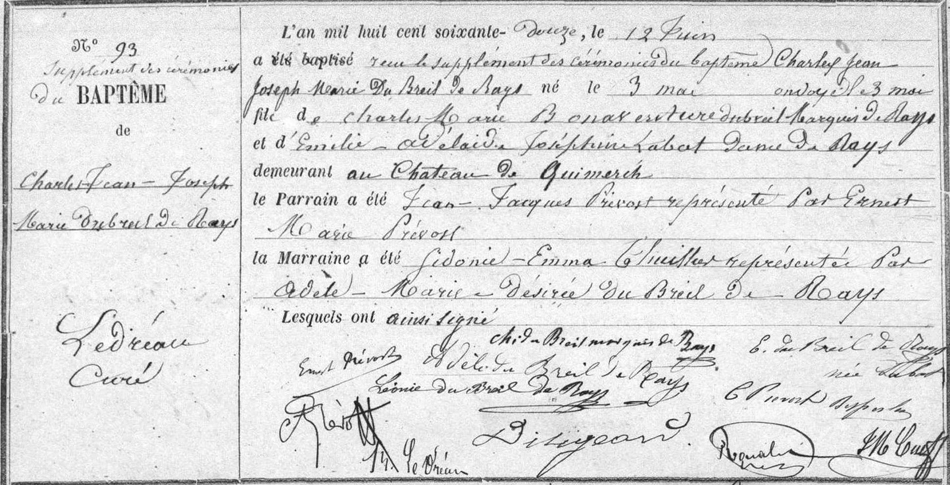 N° 93
Supplément des cérémonies
du BAPTÊME
de
Charles Jean - Joseph
Marie Dubreil De Rays
Ledréau
Curé
L'an mil huit cent soixante- Douze, le 12 Juin
a été baptisé reçu le supplément des cérémonies du baptême Charles Jean
Joseph Marie Du Breil de Rays né le 3 mai ondoyé le 3 mai
fils de Charles Marie Bonaventure dubreil Marquis de Rays
et d'Emilie - adélaide Joséphine Labat dame De Rays
demeurant au Chateau de Quimerch
le Parrain a été Jean - Jacques Prévost représenté Par Ernest
Marie Prévost
la Marraine a été Sidonie - Emma Thuillier représentée Par
Adèle - Marie - Désirée Du Breil de - Rays
Lesquels ont ainsi signé
ch. du Breil marquis de Rays
Ernest Prévost Adèle du Breil de Rays E. du Breil de Rays
née Labat
Léonie du Breil de Rays C Prevost
Prévost
Le Dréau